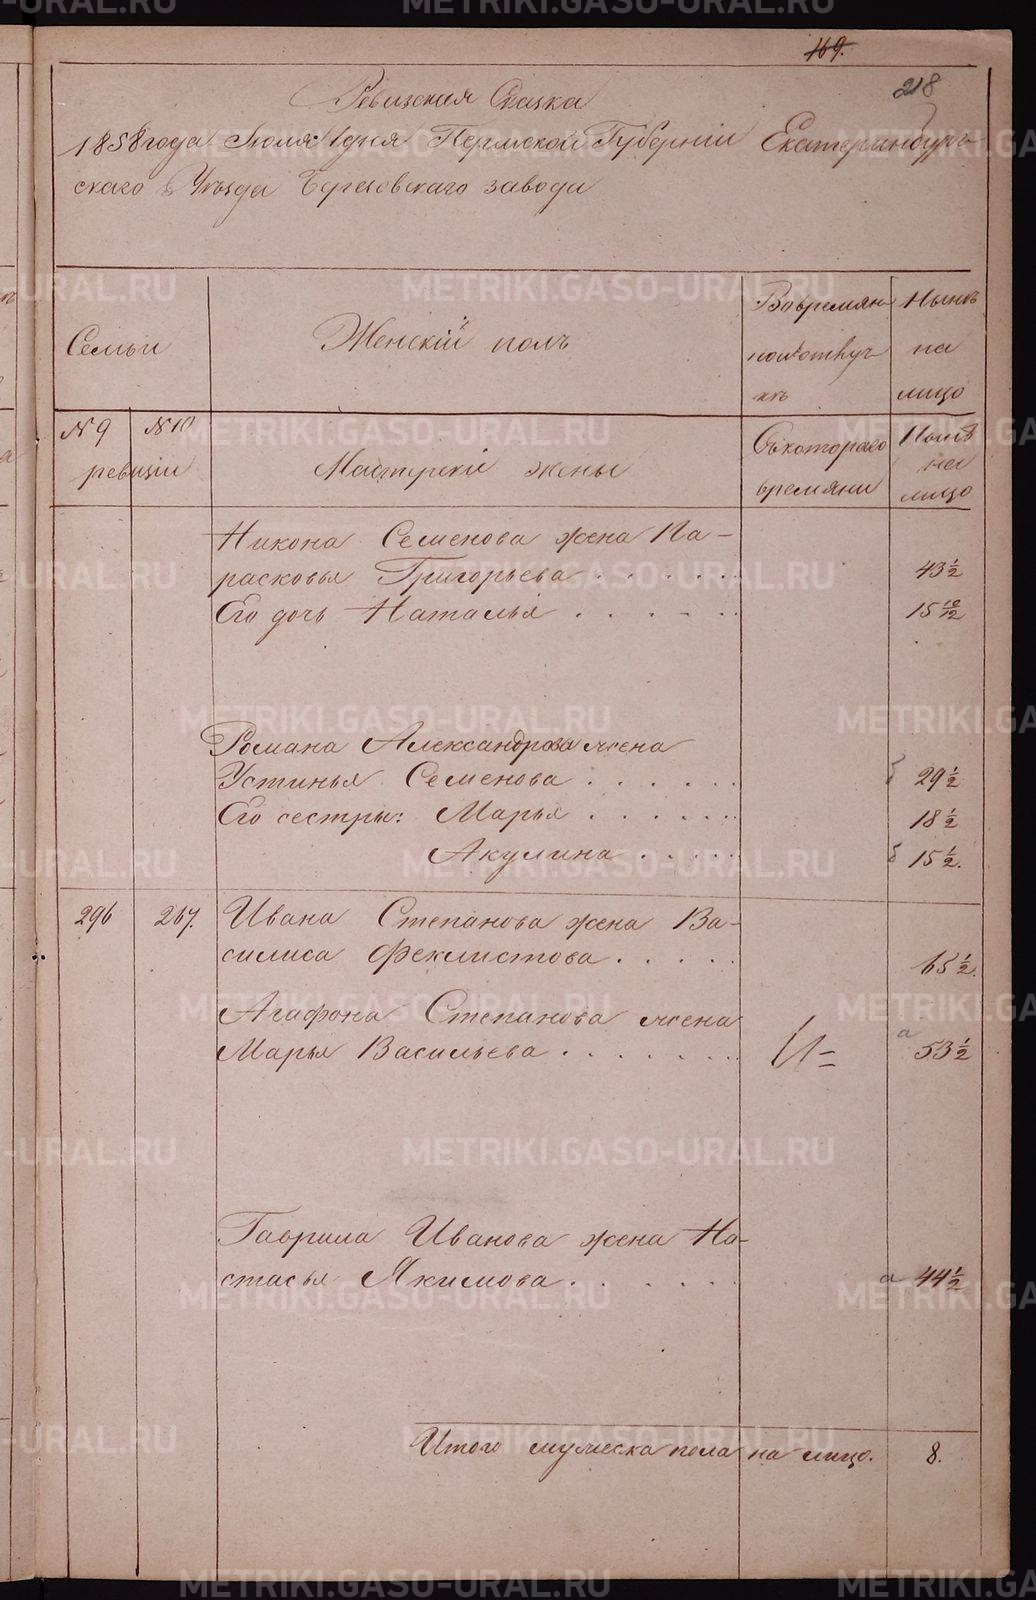 169.
218
Ревизская Сказка
1858 года Июля 1 дня Пермской Губерніи Екатеринбург-
скаго Уѣзда Березовскаго завода
Семьи
Женскій полъ
Вовремян-
ной отлуч-
кѣ
Нынѣ
на
лицо
№ 9
№ 10
ревизіи
Мастерскіи жены
Съкотораго
времяни
Нынѣ
на
лицо
Никона Семенова жена Па-
расковья Григорьева . . . . . . . 43 1/2
Его дочь Наталья . . . . . 15 10/12
Романа Александрова жена
Устинья Семенова . . . . . . 29 1/2
Его сестры: Марья . . . . . . 18 1/2
Акулина . . . . . 15 1/2.
296 267. Ивана Степанова жена Ва-
силиса Феклистова . . . . . 65 1/2.
Агафона Степанова жена
Марья Васильева . . . . . . . . а 53 1/2
Гаврила Иванова жена На-
стасья Якимова . . . . . . . а 44 1/2
Итого мужеска пола на лицо. 8.
METRIKI.GASO-URAL.RU